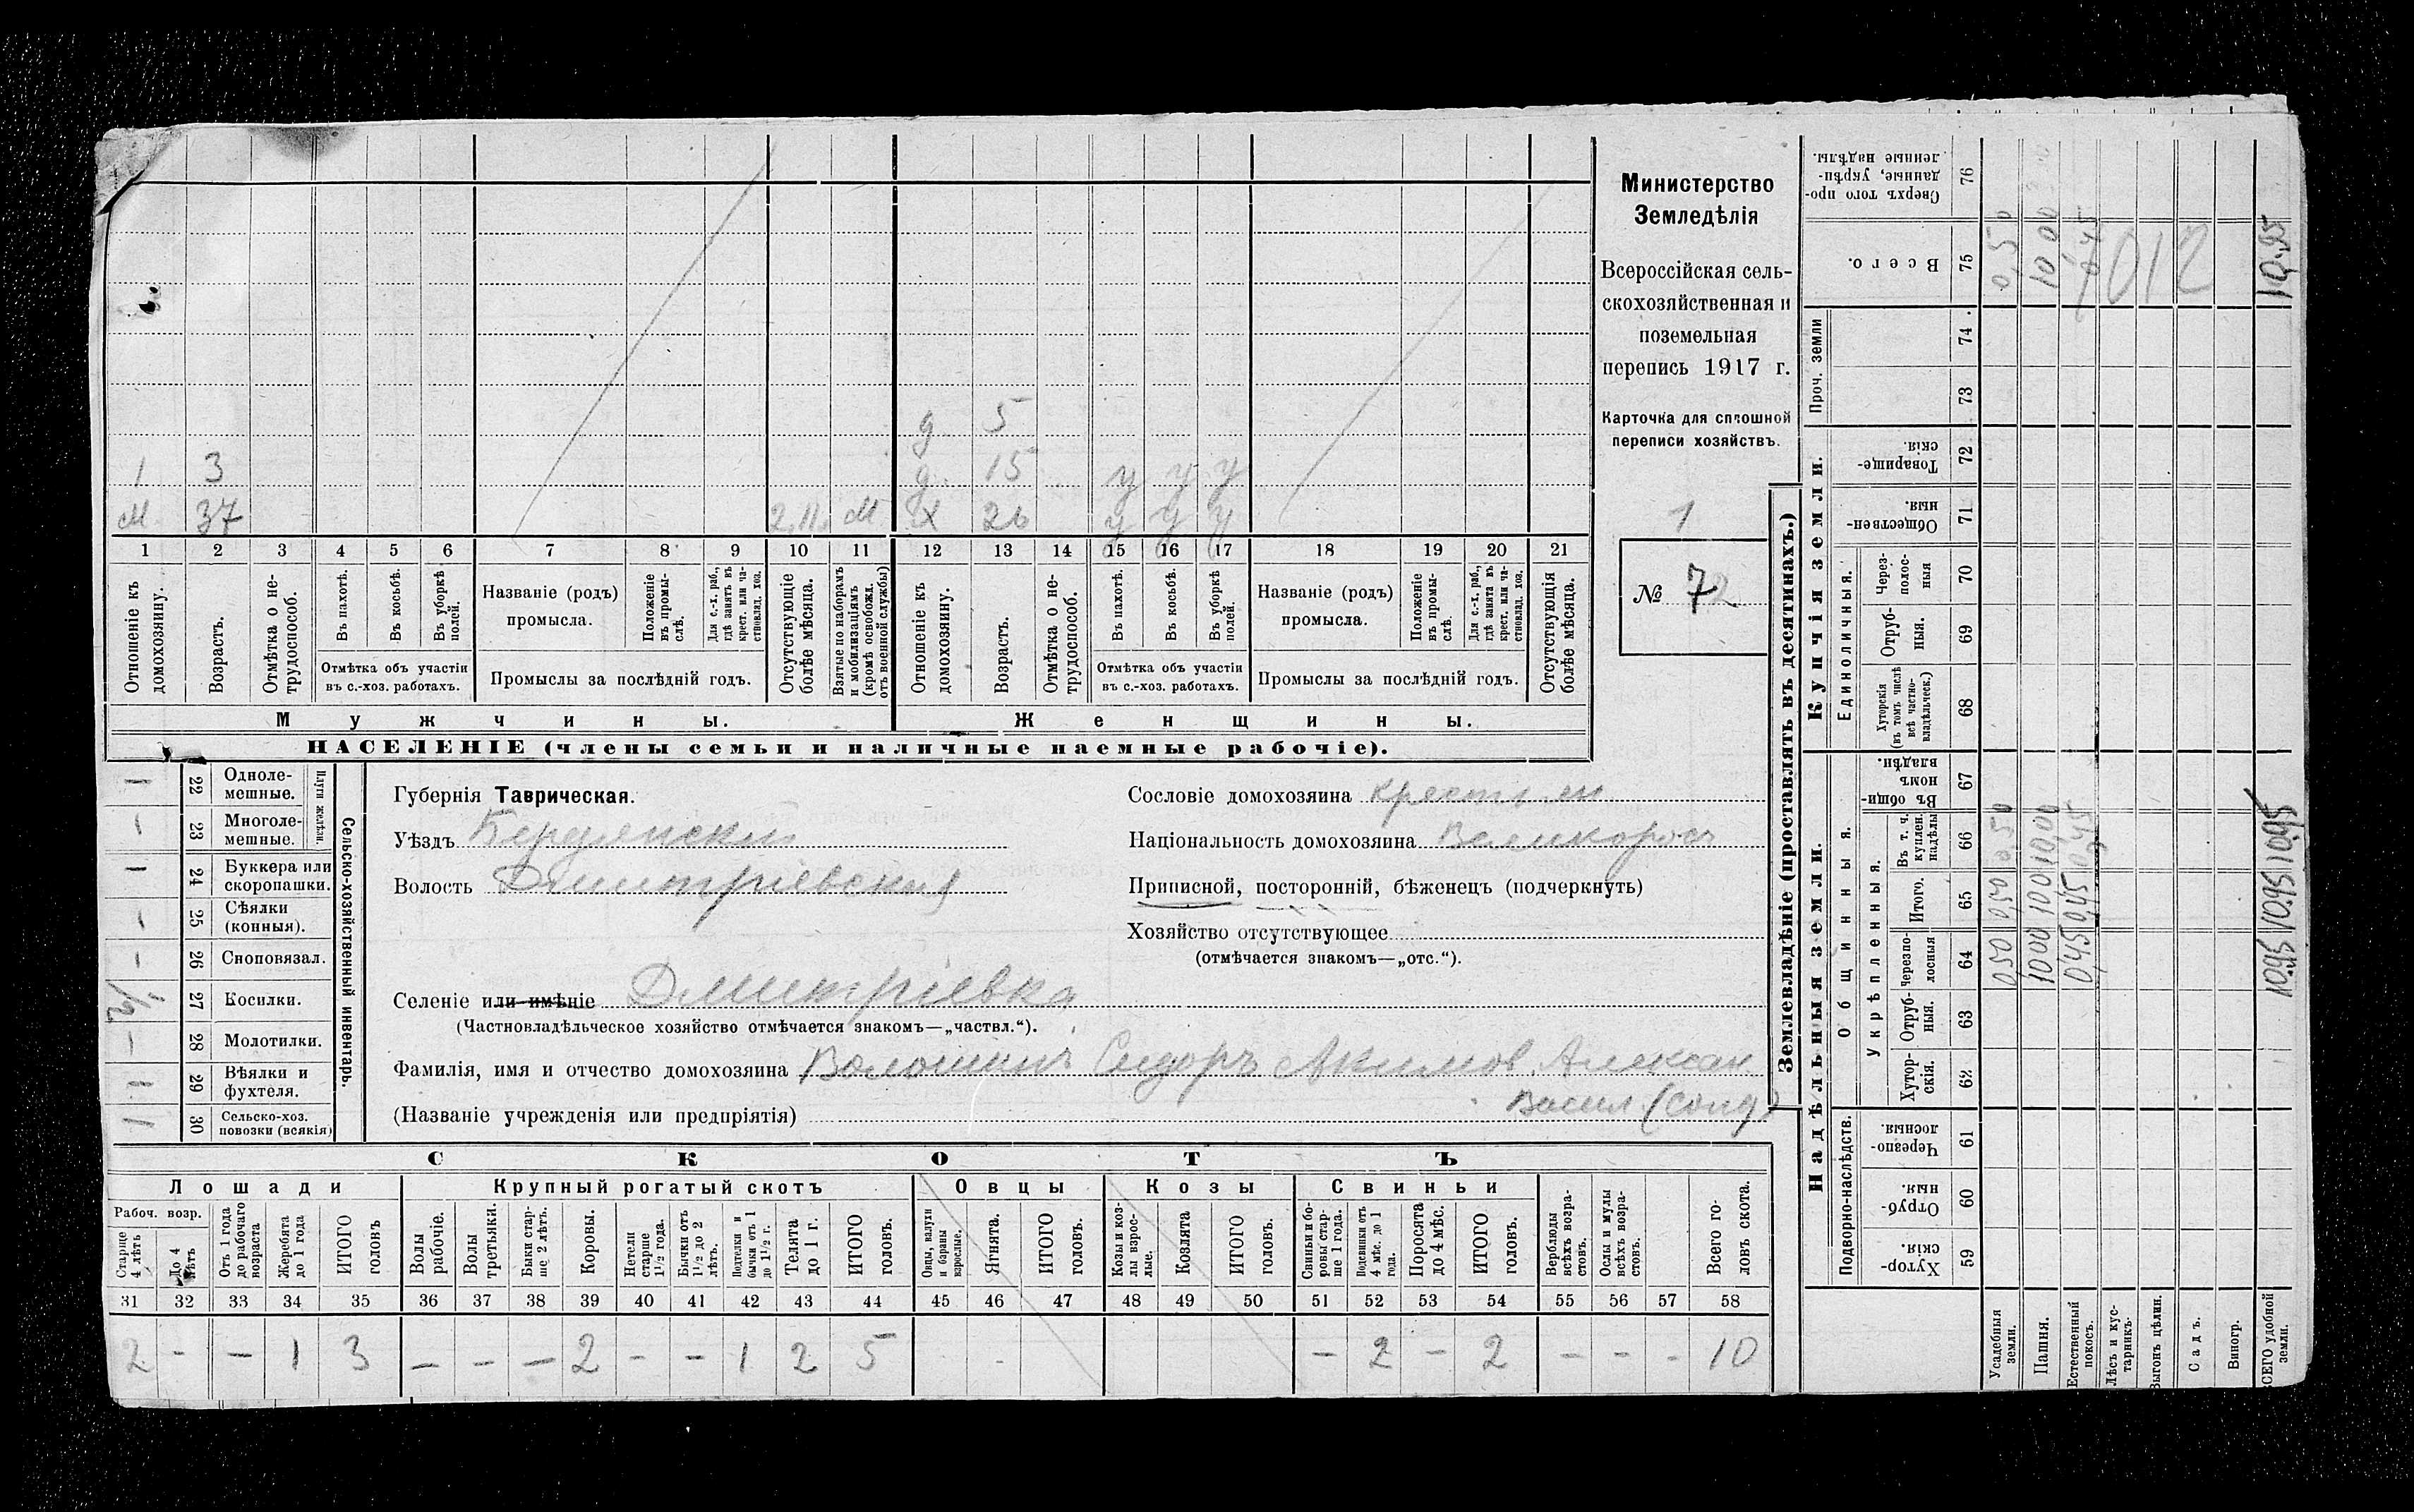 Министерство
Земледѣлія
Всероссійская сель-
скохозяйственная и
поземельная
перепись 1917 г.
Карточка для сплошной
переписи хозяйствъ.
1
№ 72
д 5
1 3 д. 15 у у у
М 37 2,11, М Х 26 у у у
1 2 3 4 5 6 7 8 9 10 11 12 13 14 15 16 17 18 19 20 21
Отношеніе къ домохозяину.
Возрастъ.
Отмѣтка о не-трудоспособ.
Въ пахотѣ.
Въ косьбѣ.
Въ уборкѣ полей.
Отмѣтка объ участіи
въ с.-хоз. работахъ.
Названіе (родъ)
промысла.
Положеніе въ промы-слѣ.
Для с.-х. раб., гдѣ занятъ въ крест. или ча-стновлад. хоз.
Промыслы за послѣдній годъ.
Отсутствующіе болѣе мѣсяца.
Взятые по наборамъ и мобилизаціямъ (кромѣ освобожд. отъ военной службы)
Отношеніе къ домохозяину.
Возрастъ.
Отмѣтка о не-трудоспособ.
Въ пахотѣ.
Въ косьбѣ.
Въ уборкѣ полей.
Отмѣтка объ участіи
въ с.-хоз. работахъ.
Названіе (родъ)
промысла.
Положеніе въ промы-слѣ.
Для с.-х. раб., гдѣ занята въ крест. или ча-стновлад. хоз.
Промыслы за послѣдній годъ.
Отсутствующія болѣе мѣсяца.
Мужчины. Женщины.
НАСЕЛЕНІЕ (члены семьи и наличные наемные рабочіе).
Сельско-хозяйственный инвентарь.
Плуги желѣзн.
1 22 Одноле-мешные.
- 23 Многоле-мешные.
1 24 Буккера или скоропашки.
- 25 Сѣялки (конныя).
- 26 Сноповязал.
27 Косилки.
- 28 Молотилки.
29 Вѣялки и фухтеля.
1 30 Сельско-хоз. повозки (всякія)
Губернія Таврическая.
Уѣздъ Бердянскій
Волость Дмитріевская
Селеніе или имѣніе Дмитріевка
(Частновладѣльческое хозяйство отмѣчается знакомъ—„частвл.“).
Фамилія, имя и отчество домохозяина Волошинъ Сидоръ Акимов. Алексан
Васил (солд)
(Названіе учрежденія или предпріятія)
Сословіе домохозяина крестьян
Національность домохозяина Великоросъ
Приписной, посторонній, бѣженецъ (подчеркнуть)
Хозяйство отсутствующее
(отмѣчается знакомъ—„отс.“).
СКОТЪ
Лошади Крупный рогатый скотъ Овцы Козы Свиньи
Рабоч. возр.
Старше 4 лѣтъ
До 4 лѣтъ
Отъ 1 года до рабочаго возраста
Жеребята до 1 года
ИТОГО головъ
Волы рабочіе.
Волы третьяки.
Быки стар-ше 2 лѣтъ.
Коровы.
Нетели старше 1½ года.
Бычки отъ 1½ до 2 лѣтъ.
Подтелки и бычки отъ 1 до 1½ г.
Телята до 1 г.
ИТОГО головъ.
Овцы, валухи и бараны взрослые.
Ягнята.
ИТОГО головъ.
Козы и коз-лы взрос-лые.
Козлята
ИТОГО головъ.
Свиньи и бо-ровы стар-ше 1 года.
Подсвинки отъ 4 мѣс. до 1 года.
Поросята до 4 мѣс.
ИТОГО головъ.
Верблюды всѣхъ возра-стовъ.
Ослы и мулы всѣхъ возра-стовъ.
Всего го-ловъ скота.
31 32 33 34 35 36 37 38 39 40 41 42 43 44 45 46 47 48 49 50 51 52 53 54 55 56 57 58
2 - - 1 3 - - - 2 - - 1 2 5 - 2 - 2 - - - 10
Землевладѣніе (проставлять въ десятинахъ.)
Надѣльныя земли. Купчія земли.
Подворно-наслѣдств.
Общинныя.
Укрѣпленныя.
Единоличныя.
Проч. земли
Хутор-скія. 59
Отруб-ныя. 60
Черезпо-лосныя. 61
Хутор-скія. 62
Отруб-ныя. 63
Черезпо-лосныя 64
Итого. 65
Въ т. ч. куплен. надѣлы 66
Въ общи-номъ владѣн. 67
Хуторскія (въ томъ числѣ всѣ частно-владѣльческ.) 68
Отруб-ныя. 69
Через-полос-ныя 70
Обществен-ныя. 71
Товарище-скія. 72
73
74
Всего. 75
Сверхъ того про-данные, укрѣп-ленные надѣлы. 76
Усадебныя земли. 0,50 0,50 0,50 0,50
Пашня. 10,00 10,00 10,00 10,00
Естественный покосъ. 0,45 0,45 0,45 0,45
Лѣсъ и кус-тарникъ.
Выгонъ цѣлин.
Садъ.
012
Виногр.
ВСЕГО удобной земли. 10,95 10,95 10,95 10,95